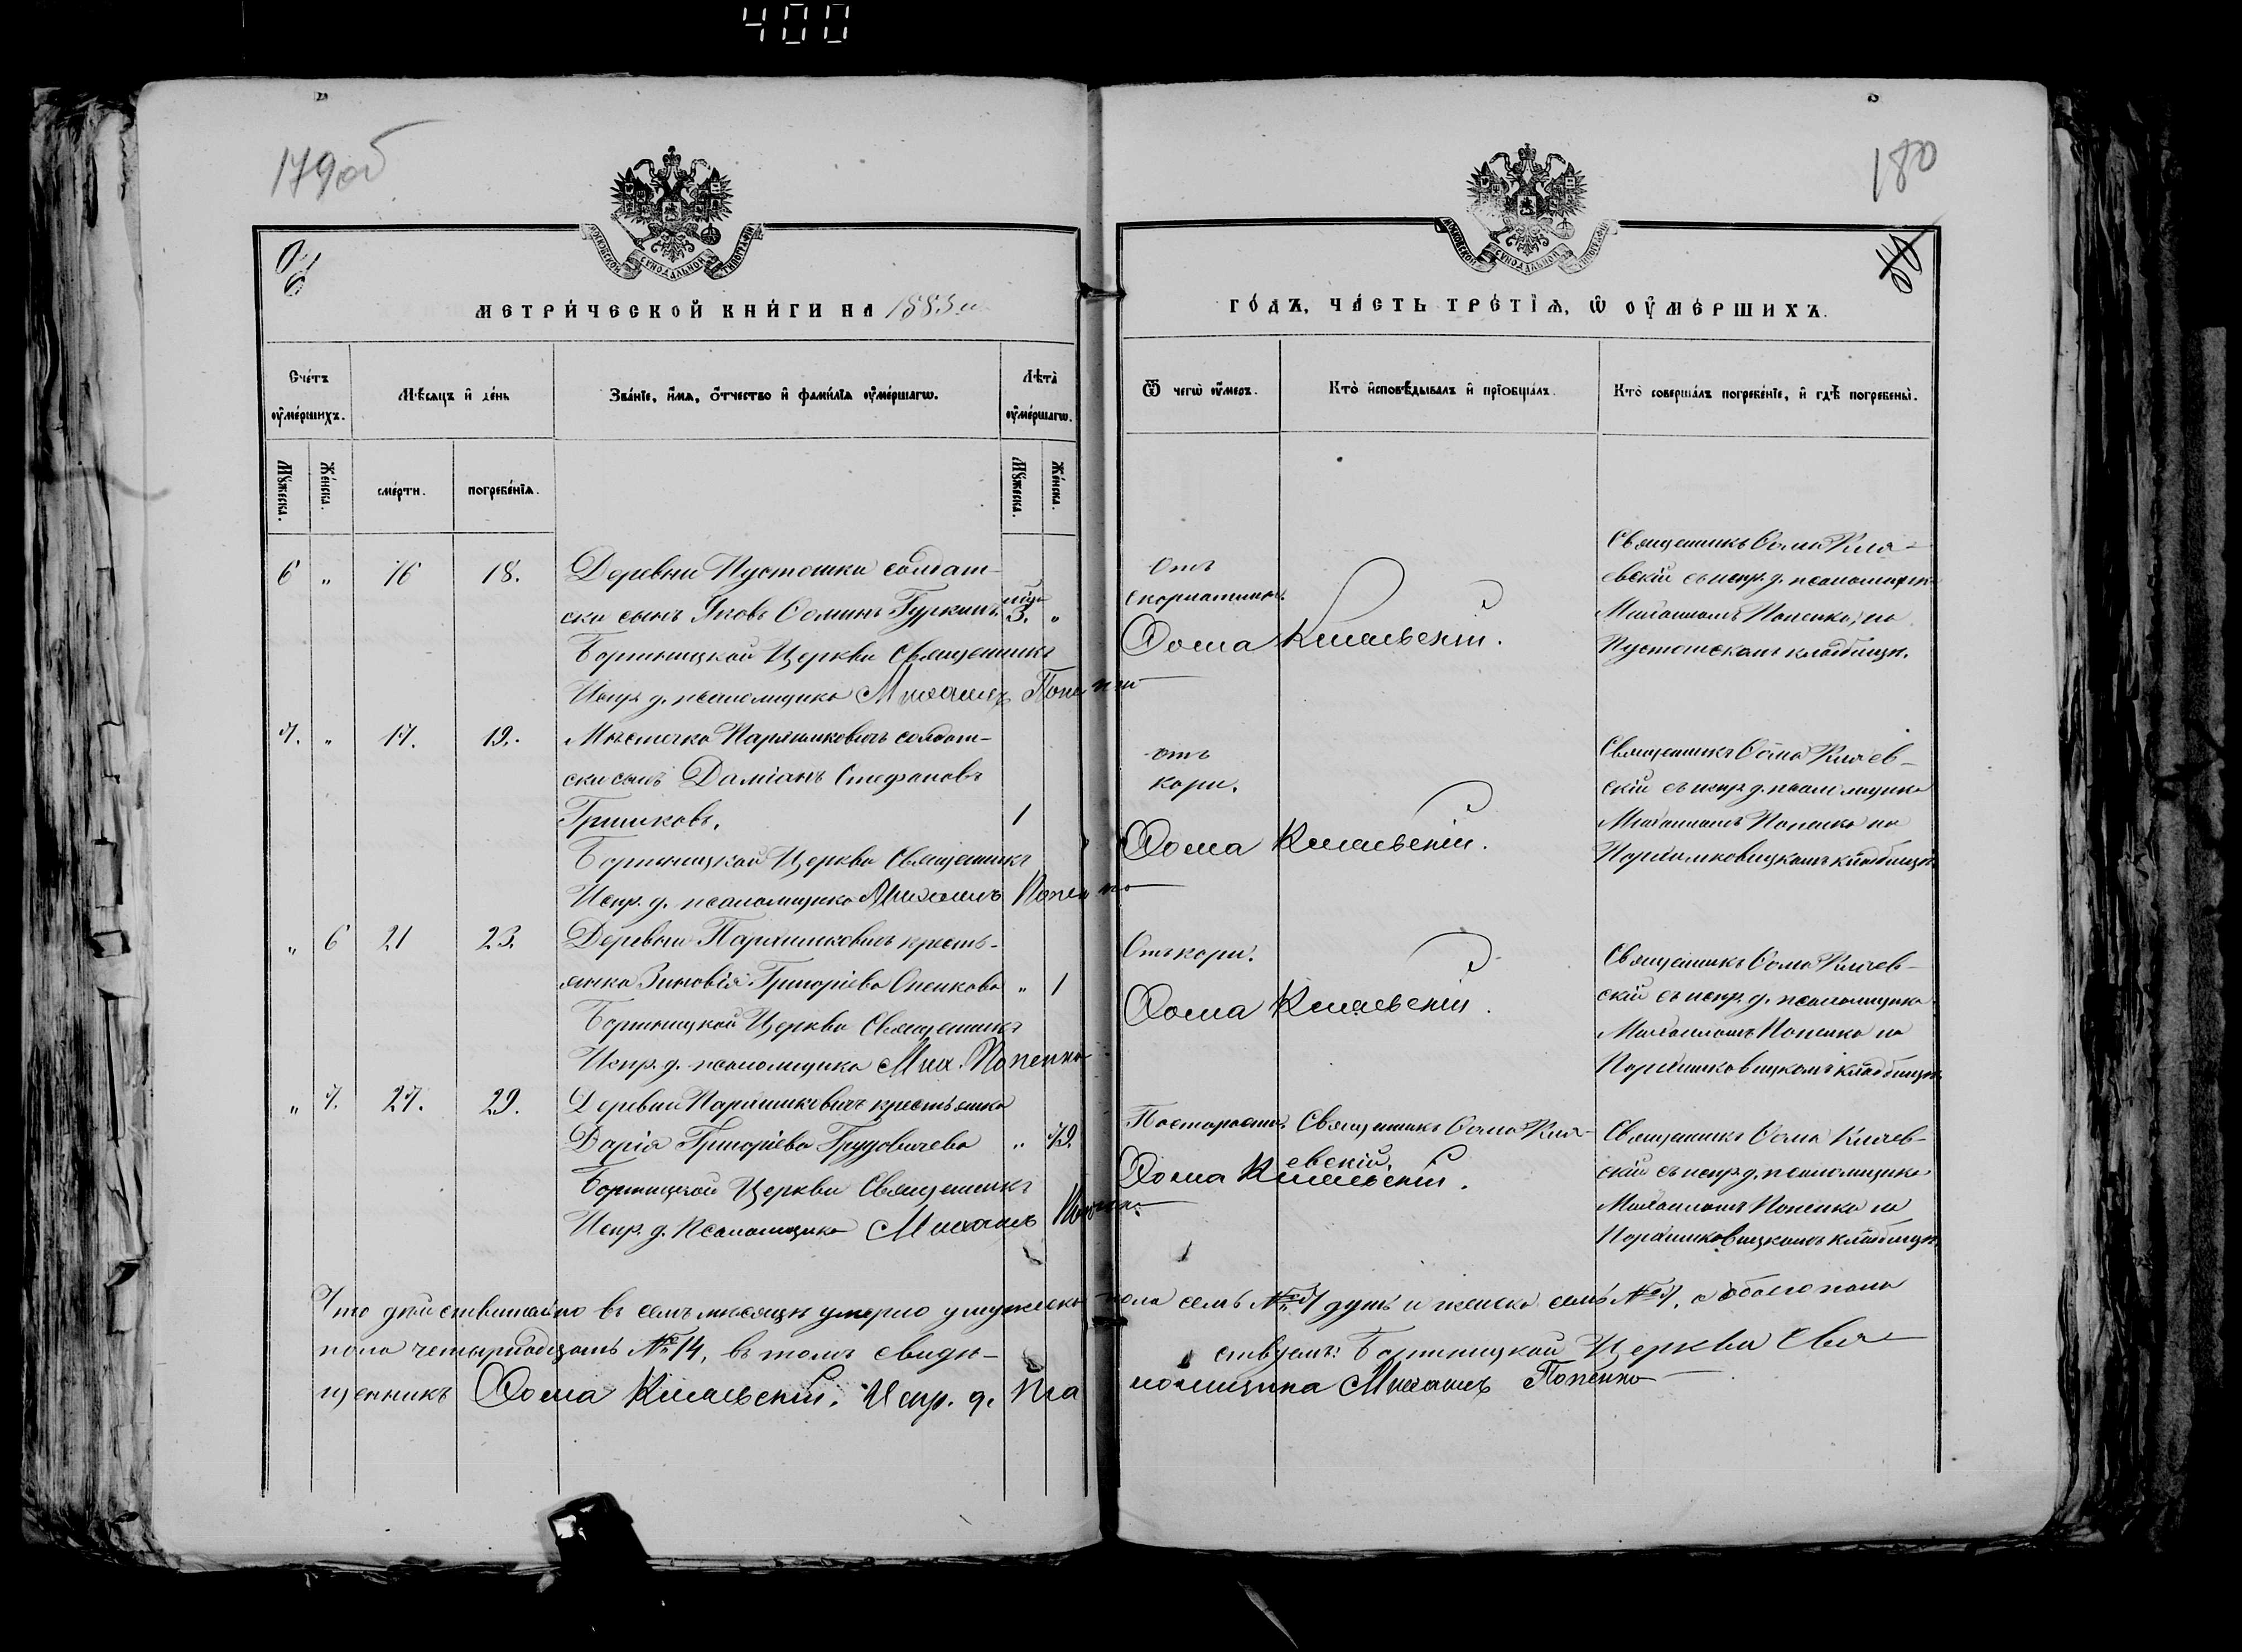 400
179об
180
МОСКОВСКОЙ СѴНОДАЛЬНОЙ ТИПОГРАФІИ
МОСКОВСКОЙ СѴНОДАЛЬНОЙ ТИПОГРАФІИ
МЕТРИ́ЧЕСКОЙ КНИ́ГИ НА 1883й
ГО́ДЪ, ЧА́СТЬ ТРЕ́ТІѦ, Ѽ ОУ҆МЕ́РШИХЪ.
Сче́тъ оу҆ме́ршихъ.
Мѣ́сѧцъ и҆ де́нь
Зва́нїе, и҆́мѧ, ѻ҆́тчество и҆ фами́лїѧ оу҆ме́ршагѡ.
Лѣ́та оу҆ме́ршагѡ.
Ѿ чегѡ̀ оу҆́меръ.
Кто̀ и҆сповѣ́дывалъ и҆ прїѡбща́лъ.
Кто̀ соверша́лъ погребе́нїе, и҆ гдѣ̀ погребены̀.
Мꙋ́жеска.
Же́нска.
сме́рти.
погребе́нїѧ.
Мꙋ́жеска.
Же́нска.
6 „ 16 18. Деревни Пустошки солдат-
ски сынъ Яковъ Ѳоминъ Гуркинъ 3. „
Бортницкой Церкви Священникъ
Испр. д. псаломщика Михаилъ Попенко
Отъ
скорлатины.
Ѳома Кляевскій.
Священникъ Ѳома Кля-
евскій съ испр. д. псаломщика
Михаиломъ Попенко, на
Пустошскомъ кладбищѣ.
7. „ 17. 19. Мѣстечка Пархимковичъ солдат-
ски сынъ Даміанъ Стефановъ
Гришковъ. 1
Бортницкой Церкви Священникъ
Испр. д. псаломщика Михаилъ Попенко
отъ
кори.
Ѳома Кляевскій.
Священникъ Ѳома Кляев-
скій съ испр. д. псаломщика
Михаиломъ Попенко на
Пархимковицкомъ кладбищѣ.
„ 6 21 23. Деревни Пархимковичъ кресть-
янка Зиновія Григоріева Опенкова „ 1
Бортницкой Церкви Священникъ
Испр. д. псаломщика Мих. Попенко
Отъ кори.
Ѳома Кляевскій.
Священникъ Ѳома Кляев-
скій съ испр. д. псаломщика
Михаиломъ Попенко на
Пархимковицкомъ кладбищѣ.
„ 7. 27. 29. Деревни Пархимковичъ крестьянка
Дарія Григоріева Грудовичева „ 79.
Бортницкой Церкви Священникъ
Испр. д. Псаломщика Михаилъ Попенко
По старости Священникъ Ѳома Кля-
евскій.
Ѳома Кляевскій.
Священникъ Ѳома Кляев-
скій съ испр. д. псаломщика
Михаиломъ Попенко на
Пархимковицкомъ кладбищѣ.
Что дѣйствительно въ семъ мѣсяцѣ умерло у мужеска пола семь № 7 душъ и женска семь № 7, а обоего пола
пола четырнадцать № 14, въ томъ свидѣ- ствуемъ: Бортницкой Церкви Свя-
щенникъ Ѳома Кляевскій. Испр. д. пса ломщика Михаилъ Попенко